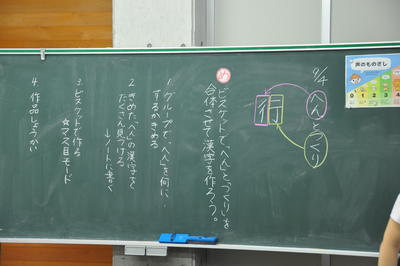 9/4
へんとつくり
行
め ビスケットで、「へん」と「つくり」を
合体させて漢字を作ろう。
1. グループで、「へん」を何に
するかきめる
2. きめた「へん」の漢字を
たくさん見つける
↓ノートに書く
3. ビスケットで作る
☆マス目モード
4. 作品しょうかい
声のものさし
0 1 2 3 4